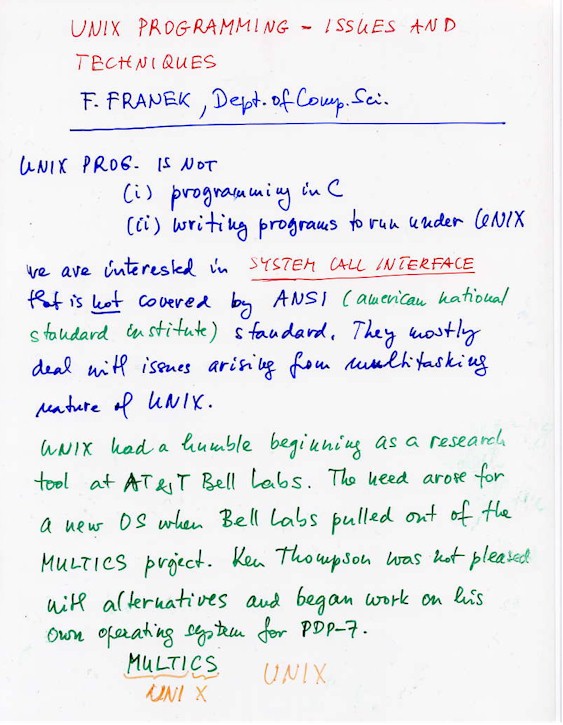 UNIX PROGRAMMING - ISSUES AND
TECHNIQUES
F. FRANEK, Dept. of Comp. Sci.
UNIX PROG. IS NOT
(i) programming in C
(ii) writing programs to run under UNIX
we are interested in SYSTEM CALL INTERFACE
that is not covered by ANSI (american national
standard institute) standard. They mostly
deal with issues arising from multitasking
nature of UNIX.
UNIX had a humble beginning as a research
tool at AT&T Bell Labs. The need arose for
a new OS when Bell Labs pulled out of the
MULTICS project. Ken Thompson was not pleased
with alternatives and began work on his
own operating system for PDP-7.
MULTICS
UNI X UNIX